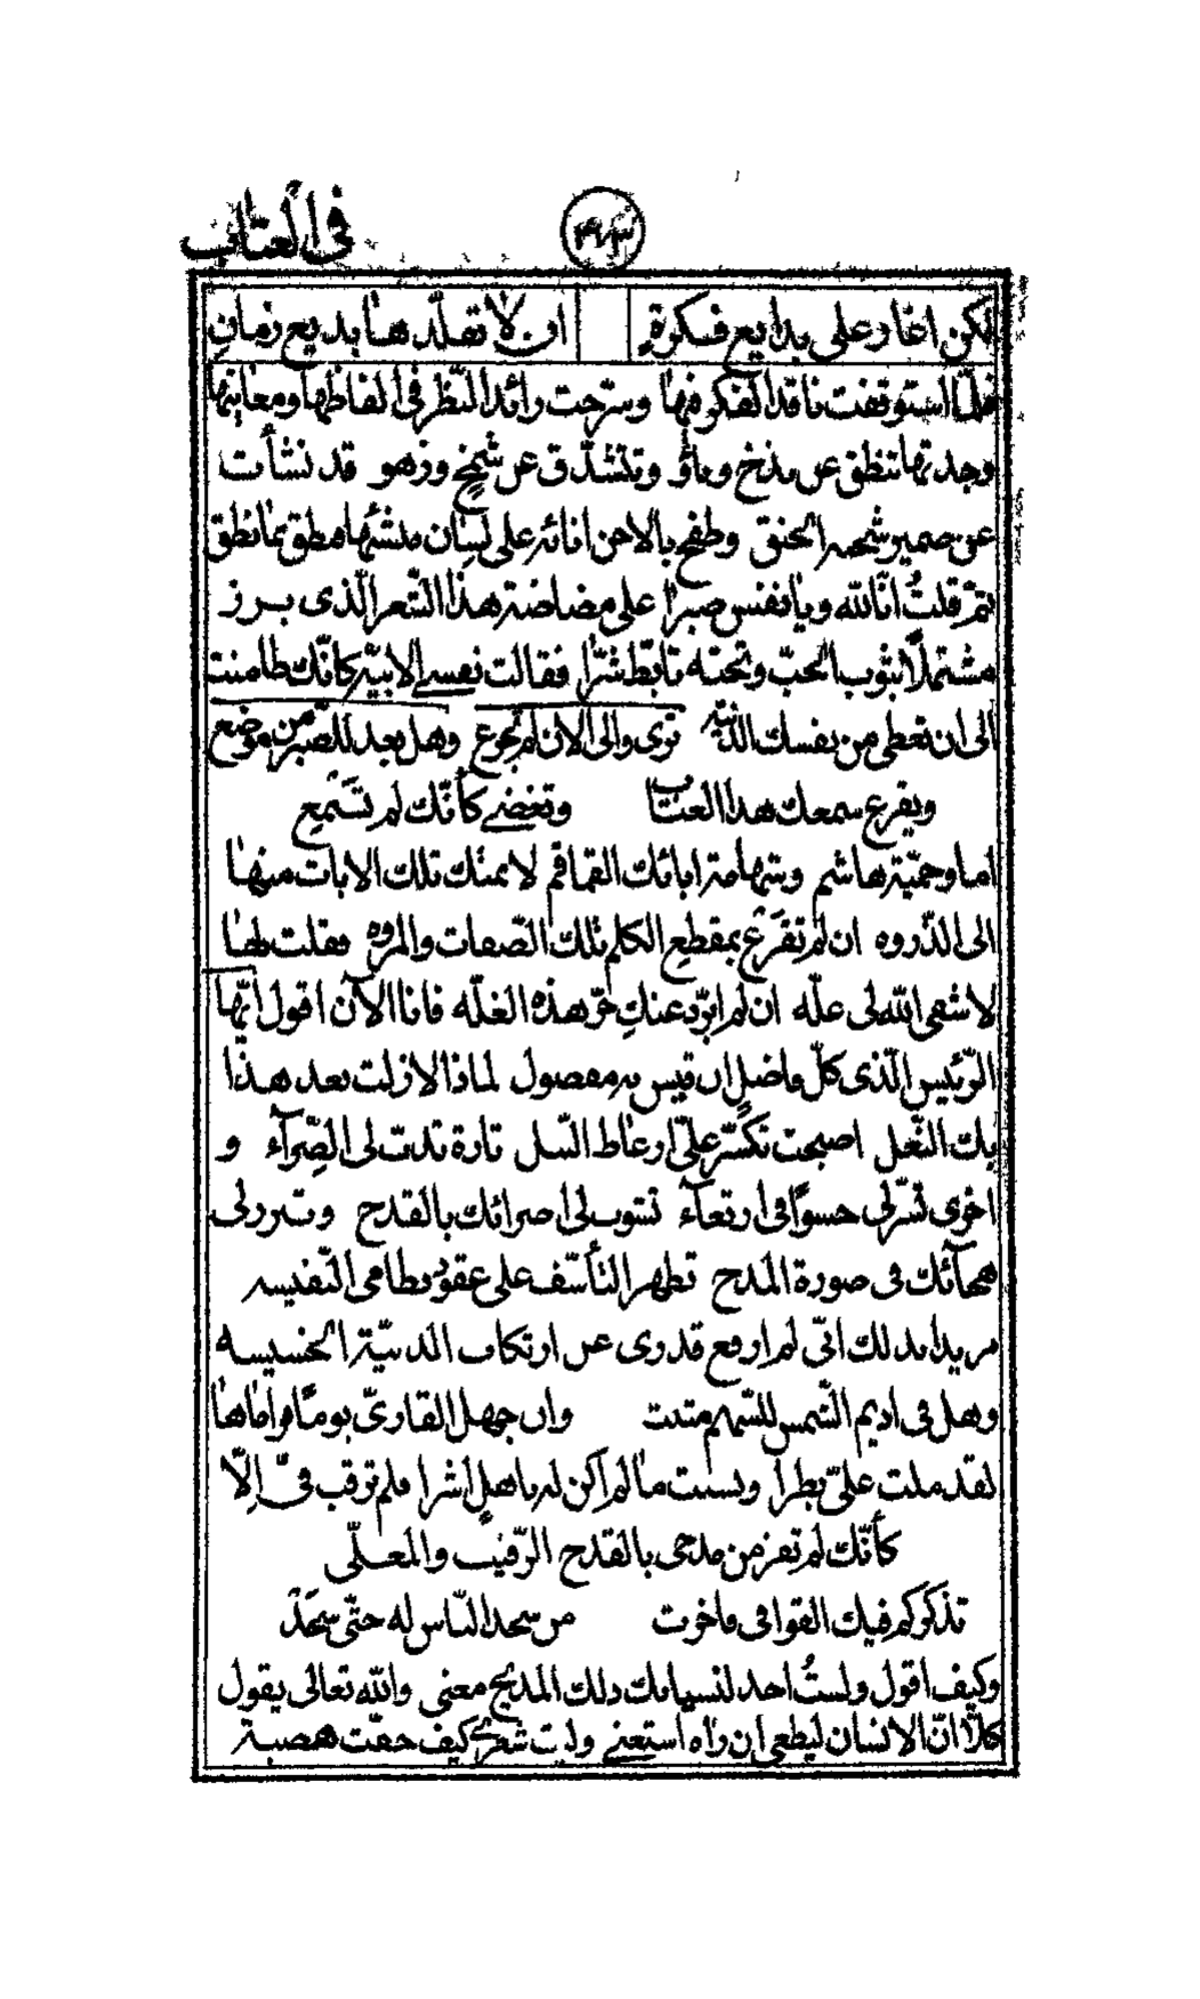 فی العتاب
لکن اغار علی بدایع فکرة ان لا تقلّد ها بدیع زمان
فلمّا استوقفت ناقد الفکر فیها وسرّحت رائد النّظر فی الفاظها ومعانیها
وجدتها تنطق عن بذخ وباؤ وتتشدّق عن شمخ وزهو قد نشأت
عن ضمیر شحنه الحنق وطفح بالاحن انائه علی لسان منشئها فنطق بما نطق
ثمّ قلتُ انّا لله ویا نفس صبرا علی مضاضة هذا الشّعر الّذی برز
مشتملًا بثوب الحبّ وتحته تابّط شرّا فقالت نفسی الابیّة کانّک طامنت
الی ان تعطی من نفسک الدّنیّه تری والی الان لم تجزع وهل بعد للصّبر من موضع
ویقرع سمعک هذا العتاب وتغضی کأنّک لم تسمع
اما وحمیّة هاشم وشهامة ابائک القماقم لا منتک تلک الابات منها
الی الذّروه ان لم تقرع بمقطع الکلم تلک الصّفات والمروه فقلت لها
لا شفی الله لی علّه ان لم ابرّد عنکِ حرّ هذه الغلّه فانا الآن اقول ایّها
الرّئیس الّذی کلّ فاضل ان قیس به مفضول لماذا لا زلت بعد هذا
بک النّعل اصبحت تکسّر علیّ ارعاظ النّبل تارة تدبّ لی الضّرآء و
اخری تسرّ لی حسوًا فی ارتغآء تشوب لی اطرائک بالقدح وتبرز لی
هجآئک فی صورة المدح تظهر التأسّف علی عقود نظامی النّفیسه
مریدا بذلک انّی لم ارفع قدری عن ارتکاب الدنیّة الخسیسه
وهل فی ادیم الشّمس للسّهم مثبت وان جهل القاریّ یومًا فراماها
لقد ملت علیّ بطرا ونسبت ما لم اکن له باهلٍ اشرا فلم ترقب فیّ اِلّا
کأنّک لم تفز من مدحی بالقدح الرّقیب والمعلّی
تذکر کم فیک القوافی فاخرت من سجد النّاس له حتّی سجد
وکیف اقول ولستُ اجد لنسیانک ذلک المدیح معنی والله تعالی یقول
کلّا انّ الانسان لیطغی ان راه استغنی ولیت شعری کیف خفّت هضبة